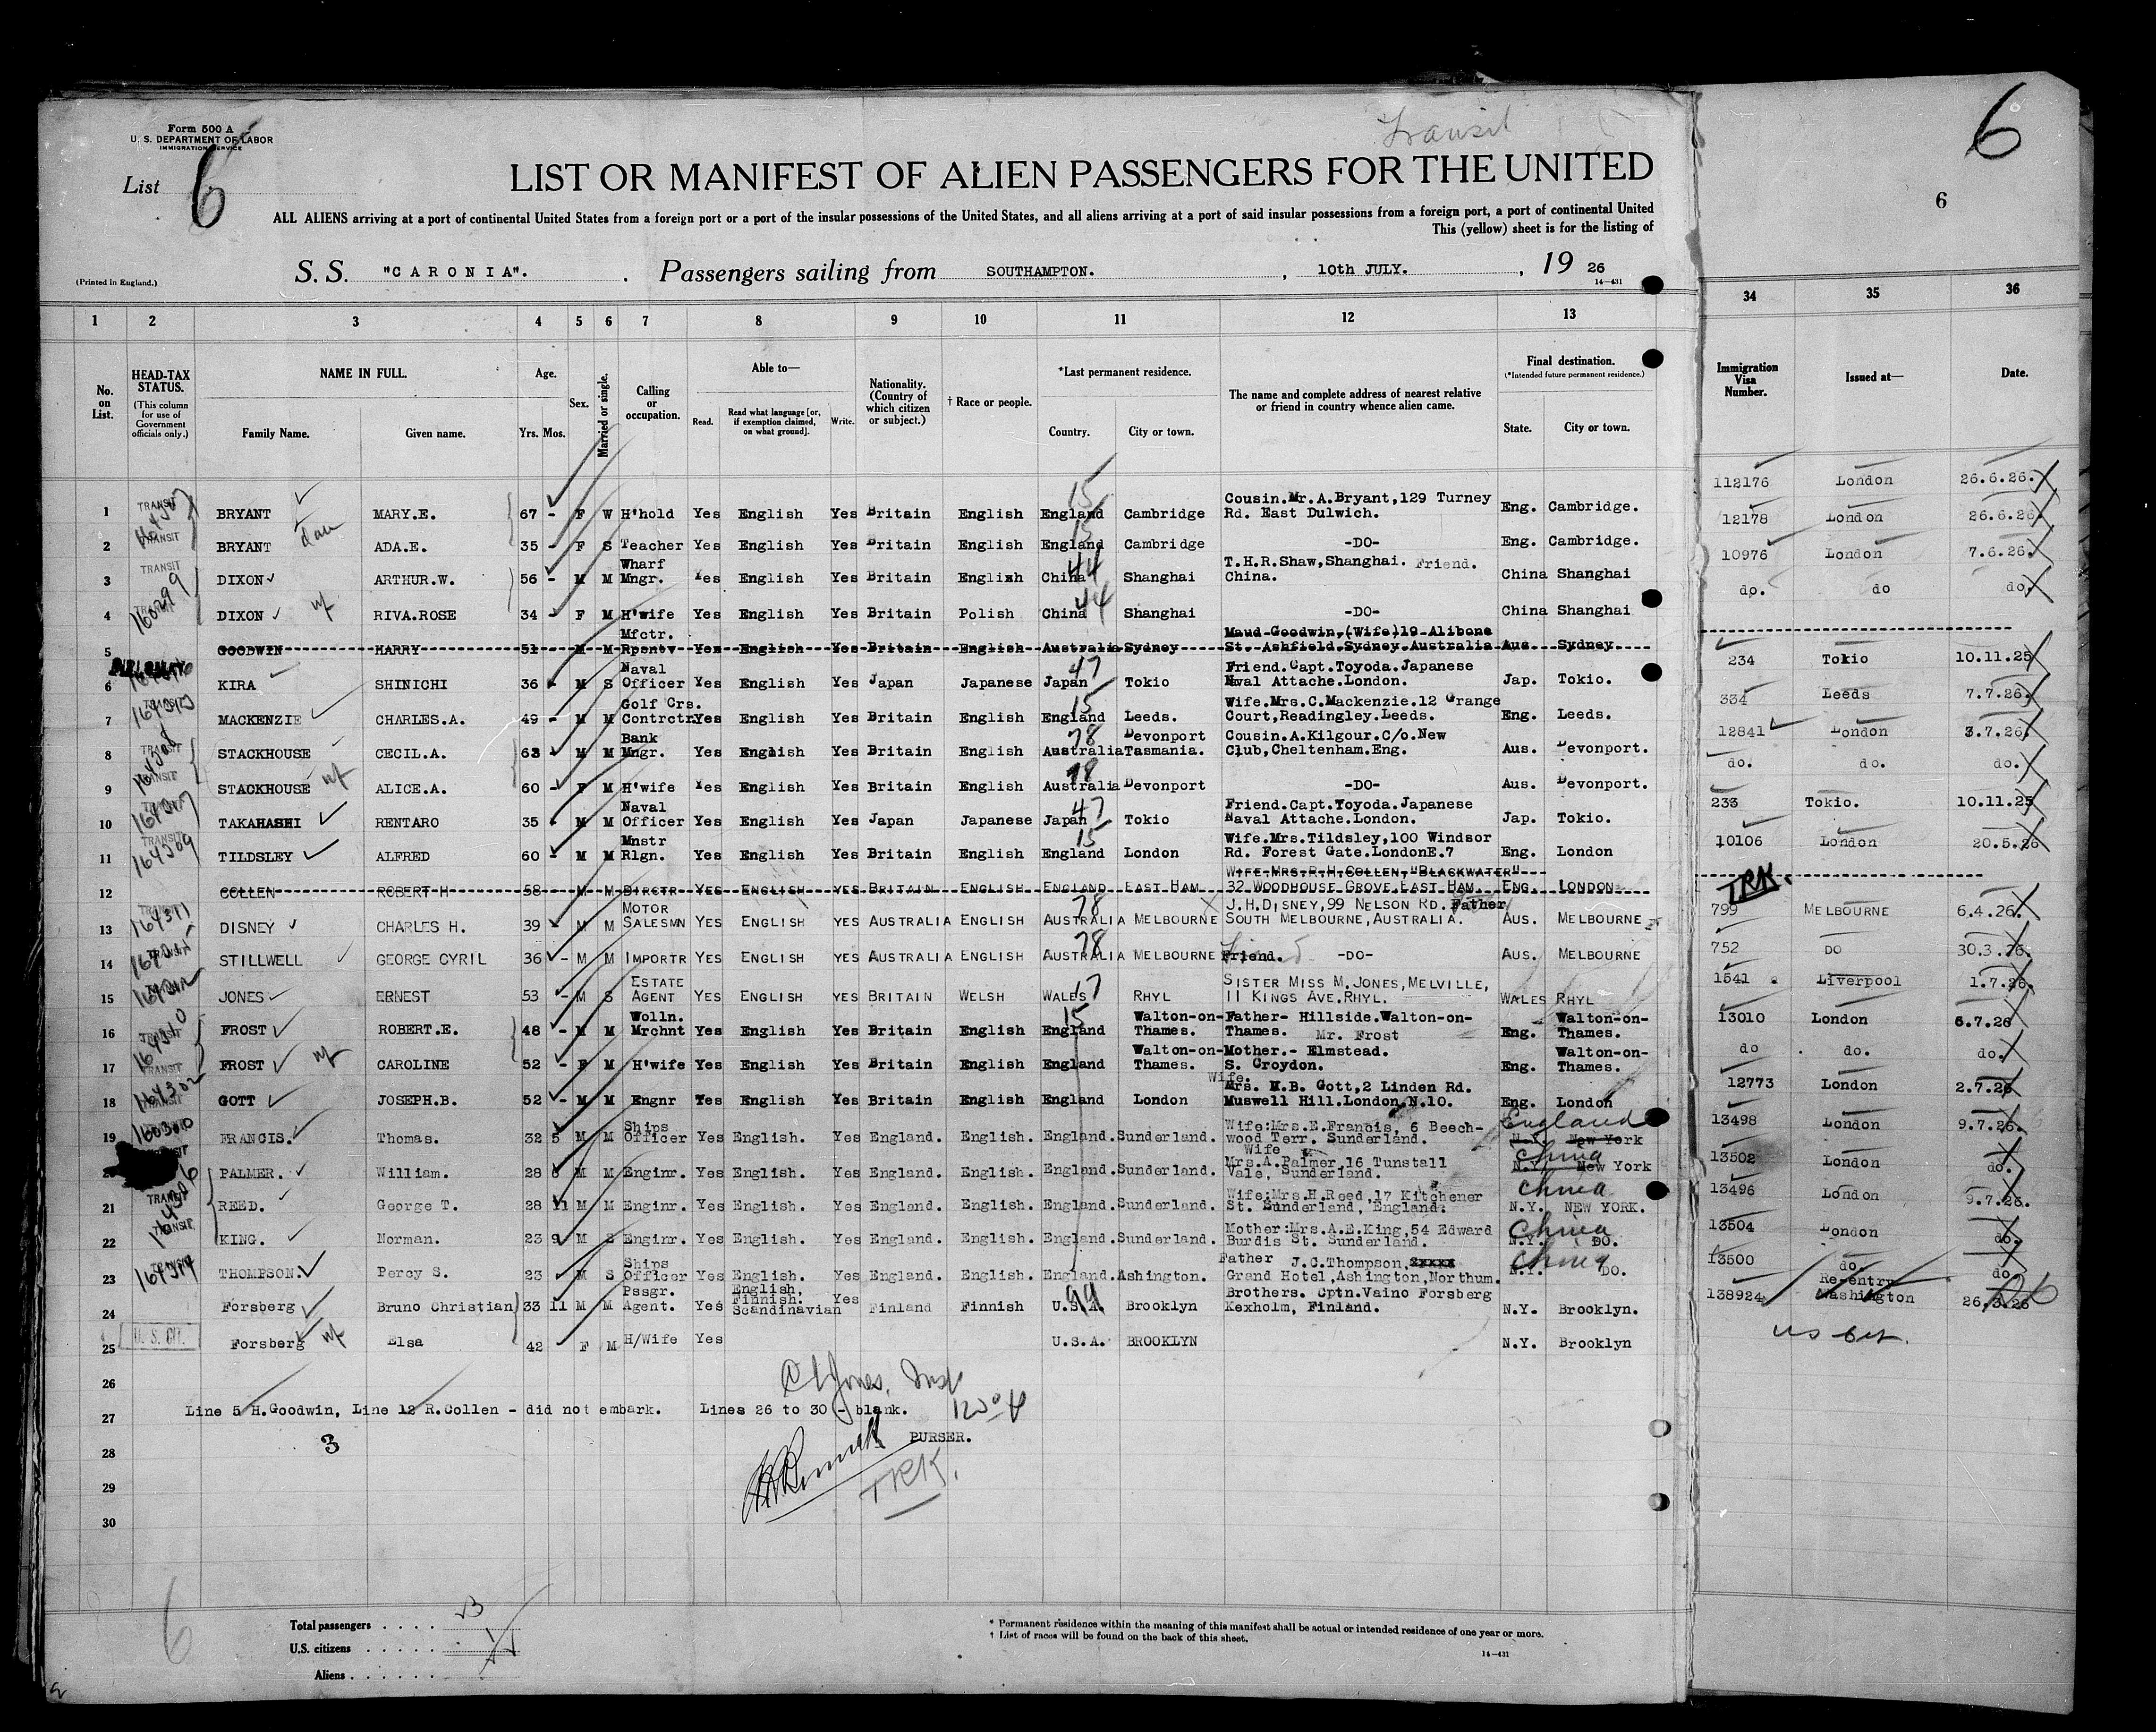 Transit
6
Form 500 A
U. S. DEPARTMENT OF LABOR
IMMIGRATION SERVICE
List 6
6
LIST OR MANIFEST OF ALIEN PASSENGERS FOR THE UNITED
ALL ALIENS arriving at a port of continental United States from a foreign port or a port of the insular possessions of the United States, and all aliens arriving at a port of said insular possessions from a foreign port, a port of continental United
This (yellow) sheet is for the listing of
S. S. "CARONIA". Passengers sailing from SOUTHAMPTON. , 10th JULY. , 19 26
(Printed in England.)
14—431
1 2 3 4 5 6 7 8 9 10 11 12 13 34 35 36
No. on List.
HEAD-TAX STATUS.
(This column for use of Government officials only.)
NAME IN FULL.
Family Name. Given name.
Age.
Yrs. Mos.
Sex.
Married or single.
Calling or occupation.
Able to—
Read. Read what language [or, if exemption claimed, on what ground]. Write.
Nationality. (Country of which citizen or subject.)
† Race or people.
*Last permanent residence.
Country. City or town.
The name and complete address of nearest relative or friend in country whence alien came.
Final destination.
(*Intended future permanent residence.)
State. City or town.
Immigration Visa Number.
Issued at—
Date.
1 TRANSIT BRYANT MARY.E. 67 - F W H'hold Yes English Yes Britain English England 15 Cambridge Cousin.Mr.A.Bryant,129 Turney Rd. East Dulwich. Eng. Cambridge. 112176 London 26.6.26.
2 TRANSIT BRYANT dau ADA.E. 35 - F S Teacher Yes English Yes Britain English England 15 Cambridge -DO- Eng. Cambridge. 12178 London 26.6.26.
3 TRANSIT DIXON ARTHUR.W. 56 - M M Wharf Mngr. Yes English Yes Britain English China 44 Shanghai T.H.R.Shaw,Shanghai. Friend. China. China Shanghai 10976 London 7.6.26.
4 TRANSIT 16029 DIXON wf RIVA.ROSE 34 - F M H'wife Yes English Yes Britain Polish China 44 Shanghai -DO- China Shanghai do. do do.
5 GOODWIN HARRY 51 - M M Mfctr. Rpsntv Yes English Yes Britain English Australia Sydney Maud Goodwin,(Wife)19 Alibone St. Ashfield.Sydney.Australia Aus. Sydney
6 DIPLOMAT KIRA SHINICHI 36 - M S Naval Officer Yes English Yes Japan Japanese Japan 47 Tokio Friend.Capt.Toyoda.Japanese Naval Attache.London. Jap. Tokio. 234 Tokio 10.11.25
7 TRANSIT MACKENZIE CHARLES.A. 49 - M M Golf Crs. Contrctr. Yes English Yes Britain English England 15 Leeds. Wife.Mrs.C.Mackenzie.12 Grange Court,Readingley.Leeds. Eng. Leeds. 334 Leeds 7.7.26.
8 TRANSIT STACKHOUSE CECIL.A. 63 - M M Bank Mngr. Yes English Yes Britain English Australia 78 Devonport Tasmania. Cousin.A.Kilgour.C/o.New Club,Cheltenham.Eng. Aus. Devonport. 12841 London 3.7.26.
9 TRANSIT STACKHOUSE wf ALICE.A. 60 - F M H'wife Yes English Yes Britain English Australia 78 Devonport -DO- Aus. Devonport. do. do. do.
10 TRANSIT TAKAHASHI RENTARO 35 - M M Naval Officer Yes English Yes Japan Japanese Japan 47 Tokio Friend.Capt.Toyoda.Japanese Naval Attache.London. Jap. Tokio. 233 Tokio. 10.11.25
11 TRANSIT 164309 TILDSLEY ALFRED 60 - M M Mnstr Rlgn. Yes English Yes Britain English England 15 London Wife.Mrs.Tildsley,100 Windsor Rd. Forest Gate.LondonE.7 Eng. London 10106 London 20.5.26
12 COLLEN ROBERT H 58 - M M DIRCTR YES ENGLISH YES BRITAIN ENGLISH ENGLAND EAST HAM WIFE MRS.R.H.COLLEN,"BLACKWATER" 32 WOODHOUSE GROVE.EAST HAM. ENG. LONDON TRK.
13 TRANSIT 164311 DISNEY CHARLES H. 39 - M M MOTOR SALESMN YES ENGLISH YES AUSTRALIA ENGLISH AUSTRALIA 78 MELBOURNE J.H.DISNEY,99 NELSON RD. Father SOUTH MELBOURNE,AUSTRALIA. AUS. MELBOURNE 799 MELBOURNE 6.4.26.
14 STILLWELL GEORGE CYRIL 36 - M M IMPORTR YES ENGLISH YES AUSTRALIA ENGLISH AUSTRALIA 78 MELBOURNE Friend. -DO- AUS. MELBOURNE 752 DO 30.3.26.
15 JONES ERNEST 53 - M S ESTATE AGENT YES ENGLISH YES BRITAIN WELSH WALES 17 RHYL SISTER MISS M.JONES,MELVILLE, 11 KINGS AVE.RHYL. WALES RHYL 1541 Liverpool 1.7.26.
16 TRANSIT 164310 FROST ROBERT.E. 48 - M M Wolln. Mrchnt Yes English Yes Britain English England 15 Walton-on-Thames. Father- Hillside.Walton-on-Thames. Mr. Frost Eng. Walton-on-Thames. 13010 London 6.7.26
17 TRANSIT FROST wf CAROLINE 52 - F M H'wife Yes English Yes Britain English England Walton-on-Thames. Mother.- Elmstead. S. Croydon. Eng. Walton-on-Thames. do do. do.
18 TRANSIT 164302 GOTT JOSEPH.B. 52 - M M Engnr Yes English Yes Britain English England London Wife. Mrs. M.B. Gott,2 Linden Rd. Muswell Hill.London.N.10. Eng. London 12773 London 2.7.26
19 FRANCIS. Thomas. 32 5 M M Ships Officer Yes English. Yes England. English. England. Sunderland. Wife:Mrs.E.Francis, 6 Beech-wood Terr. Sunderland. England N.Y. New York 13498 London 9.7.26.
20 PALMER. William. 28 6 M M Enginr. Yes English. Yes England. English. England. Sunderland. Wife Mrs.A.Palmer,16 Tunstall Vale, Sunderland. China N.Y. New York 13502 London do.
21 TRANSIT REED. George T. 28 11 M M Enginr. Yes English. Yes England. English. England. Sunderland. Wife:Mrs.H.Reed,17 Kitchener St. Sunderland, England. China N.Y. NEW YORK. 13496 London 9.7.26.
22 TRANSIT KING. Norman. 23 9 M S Enginr. Yes English. Yes England. English. England. Sunderland. Mother:Mrs.A.E.King,54 Edward Burdis St. Sunderland. China N.Y. DO. 13504 London do.
23 TRANSIT THOMPSON. Percy S. 23 M S Ships Officer Yes English. Yes England. English. England. Ashington. Father J.C.Thompson, Grand Hotel,Ashington,Northum. China N.Y. DO. 13500 do. do.
24 Forsberg Bruno Christian 33 11 M M Pssgr. Agent. Yes English, Finnish. Scandinavian Yes Finland Finnish U.S.A. 99 Brooklyn Brothers. Cptn.Vaino Forsberg Kexholm, Finland. N.Y. Brooklyn. 138924 Re-entry Washington 26.3.26
25 U. S. CIT. Forsberg wf Elsa 42 F M H/Wife Yes U.S.A. BROOKLYN N.Y. Brooklyn US Cit.
26
27 Line 5 H.Goodwin, Line 12 R.Collen - did not embark. Lines 26 to 30 - blank.
PURSER.
28 3
TRK.
29
30
6
Total passengers . . . . 23
U.S. citizens . . . . .
Aliens . . . . . .
* Permanent residence within the meaning of this manifest shall be actual or intended residence of one year or more.
† List of races will be found on the back of this sheet.
14—431